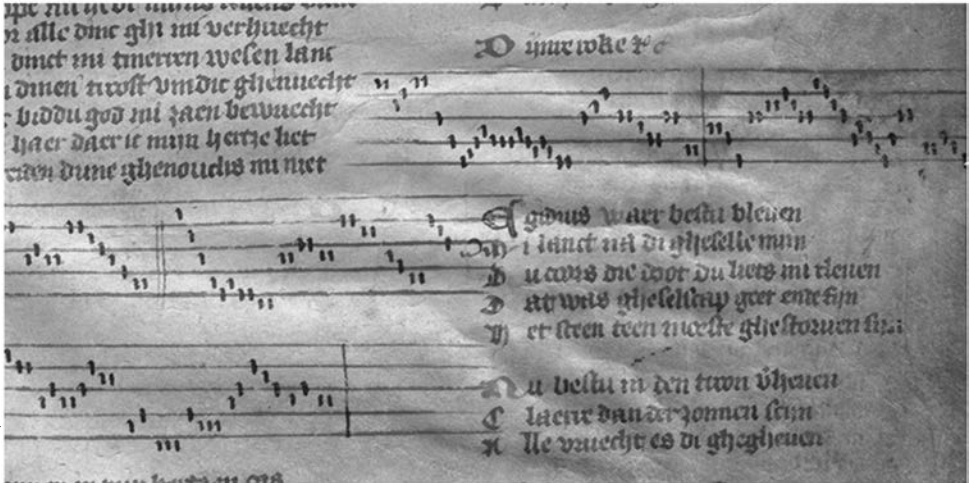 alle dinc ghi mi verhuecht
dinct mi tmerren wesen lanc
dinen troost vindic ghenuecht
biddu god mi zaen bewuecht
haer daer ic mijn hertze liet
dune mi niet
Egidius waer bestu bleuen
Mi lanct na di gheselle mijn
Du coors die doot du liets mi tleuen
Dat was gheselscap goet ende fijn
Het sceen teen moeste ghestoruen sijn
Nu bestu in den troon v̄heuen
Claerre dan der zonnen scijn
Alle vruecht es di ghegheuen